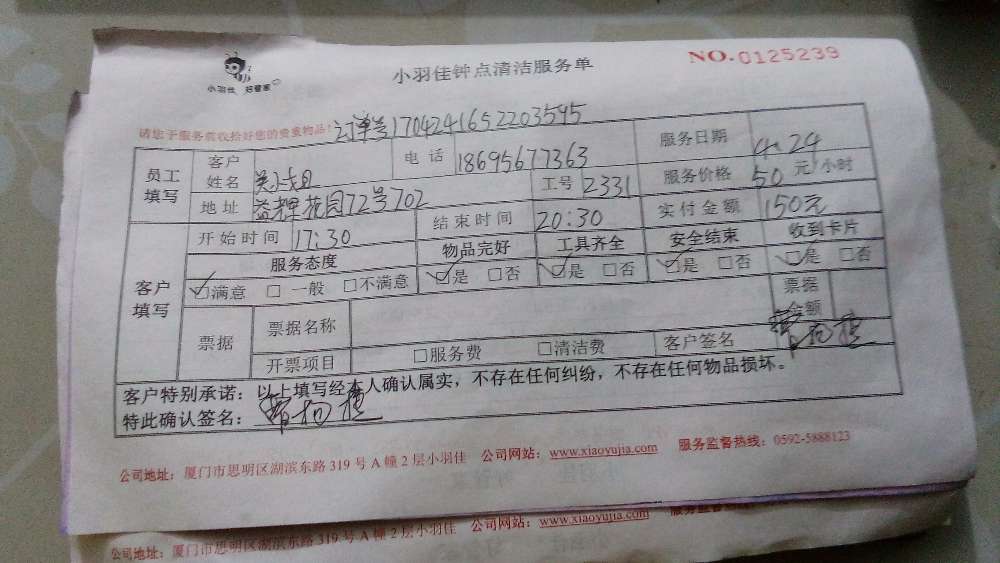 小羽佳 好管家
小羽佳钟点清洁服务单
NO.0125239
请您于服务前收拾好您的贵重物品! 订单号1704241652203545
员工填写 客户姓名 电话 18695677363 服务日期 4.24
地址 益辉花园72号702 工号 2331 服务价格 50 元/小时
客户填写 开始时间 17:30 结束时间 20:30 实付金额 150元
服务态度 物品完好 工具齐全 安全结束 收到卡片
☑满意 □一般 □不满意 ☑是 □否 ☑是 □否 ☑是 □否 ☑是 □否
票据 票据名称 票据金额
开票项目 □服务费 □清洁费 客户签名
客户特别承诺：以上填写经本人确认属实，不存在任何纠纷，不存在任何物品损坏。
特此确认签名：
公司地址：厦门市思明区湖滨东路 319 号 A 幢 2 层小羽佳 公司网站：www.xiaoyujia.com 服务监督热线：0592-5888123
公司地址：厦门市思明区湖滨东路 319 号 A 幢 2 层小羽佳 公司网站：www.xiaoyujia.com